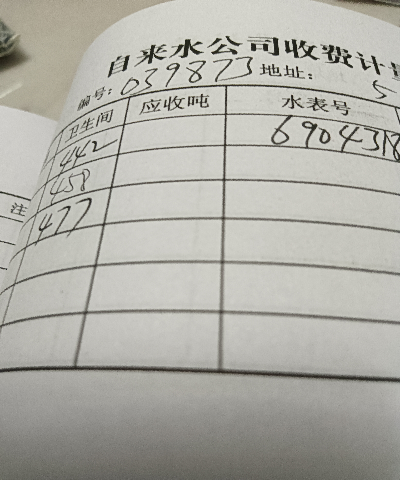 自来水公司收费计
编号: 039873 地址: 5
卫生间 应收吨 水表号
442 690431
458
注 477